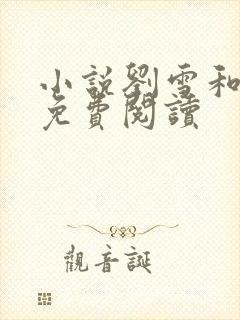 小說劉雪和
免費閱讀
觀音誕